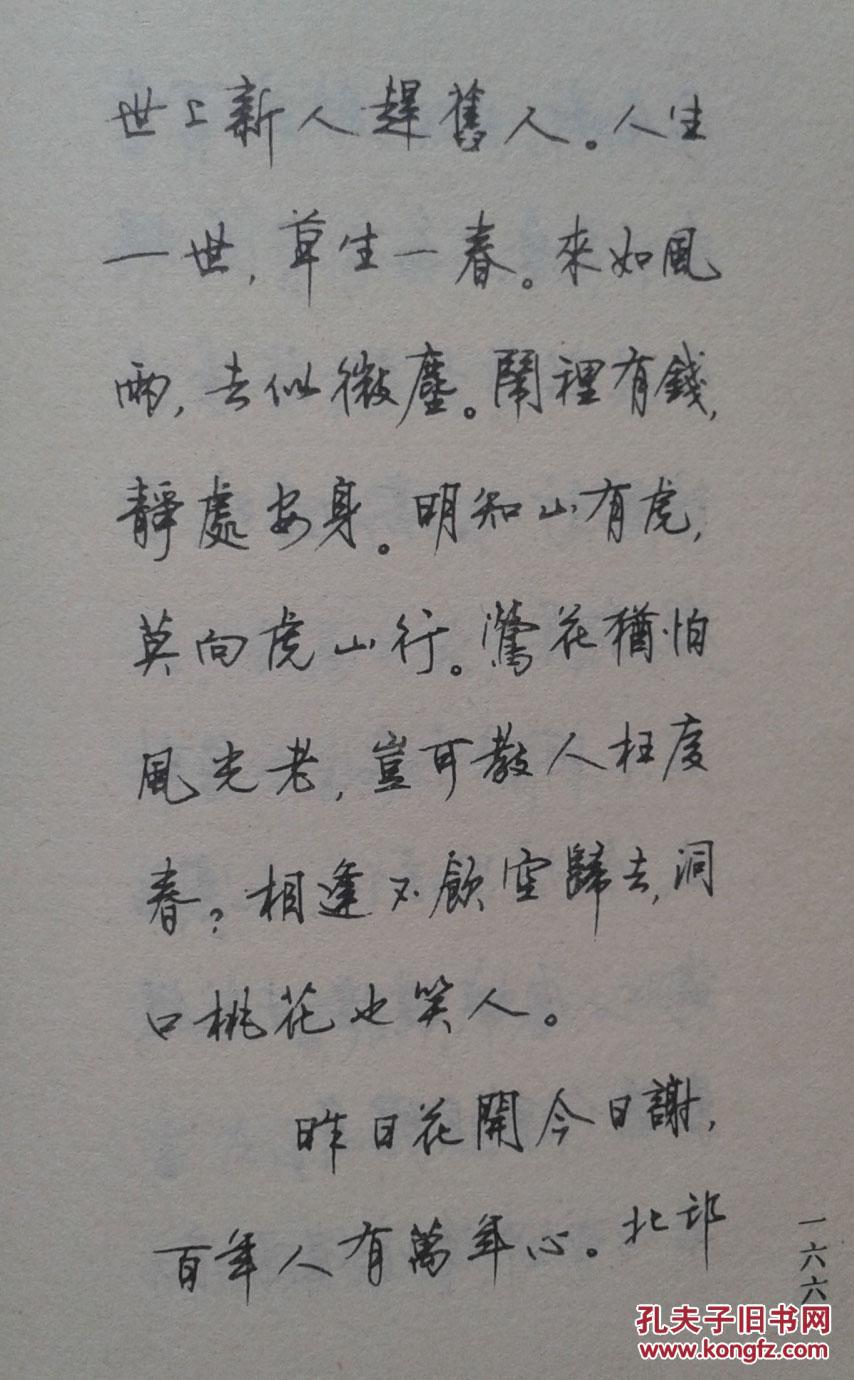 世上新人趕舊人。人生
一世，草生一春。來如風
雨，去似微塵。鬧裡有錢，
靜處安身。明知山有虎，
莫向虎山行。鶯花猶怕
風光老，豈可教人枉度
春？相逢不飲空歸去，洞
口桃花也笑人。
昨日花開今日謝，
百年人有萬年心。北邙
一六六
孔夫子旧书网
www.kongfz.com